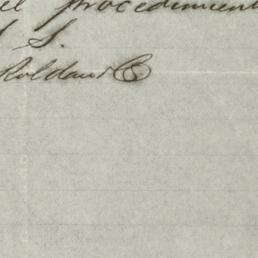 el procedimient
S.
Roldan y C